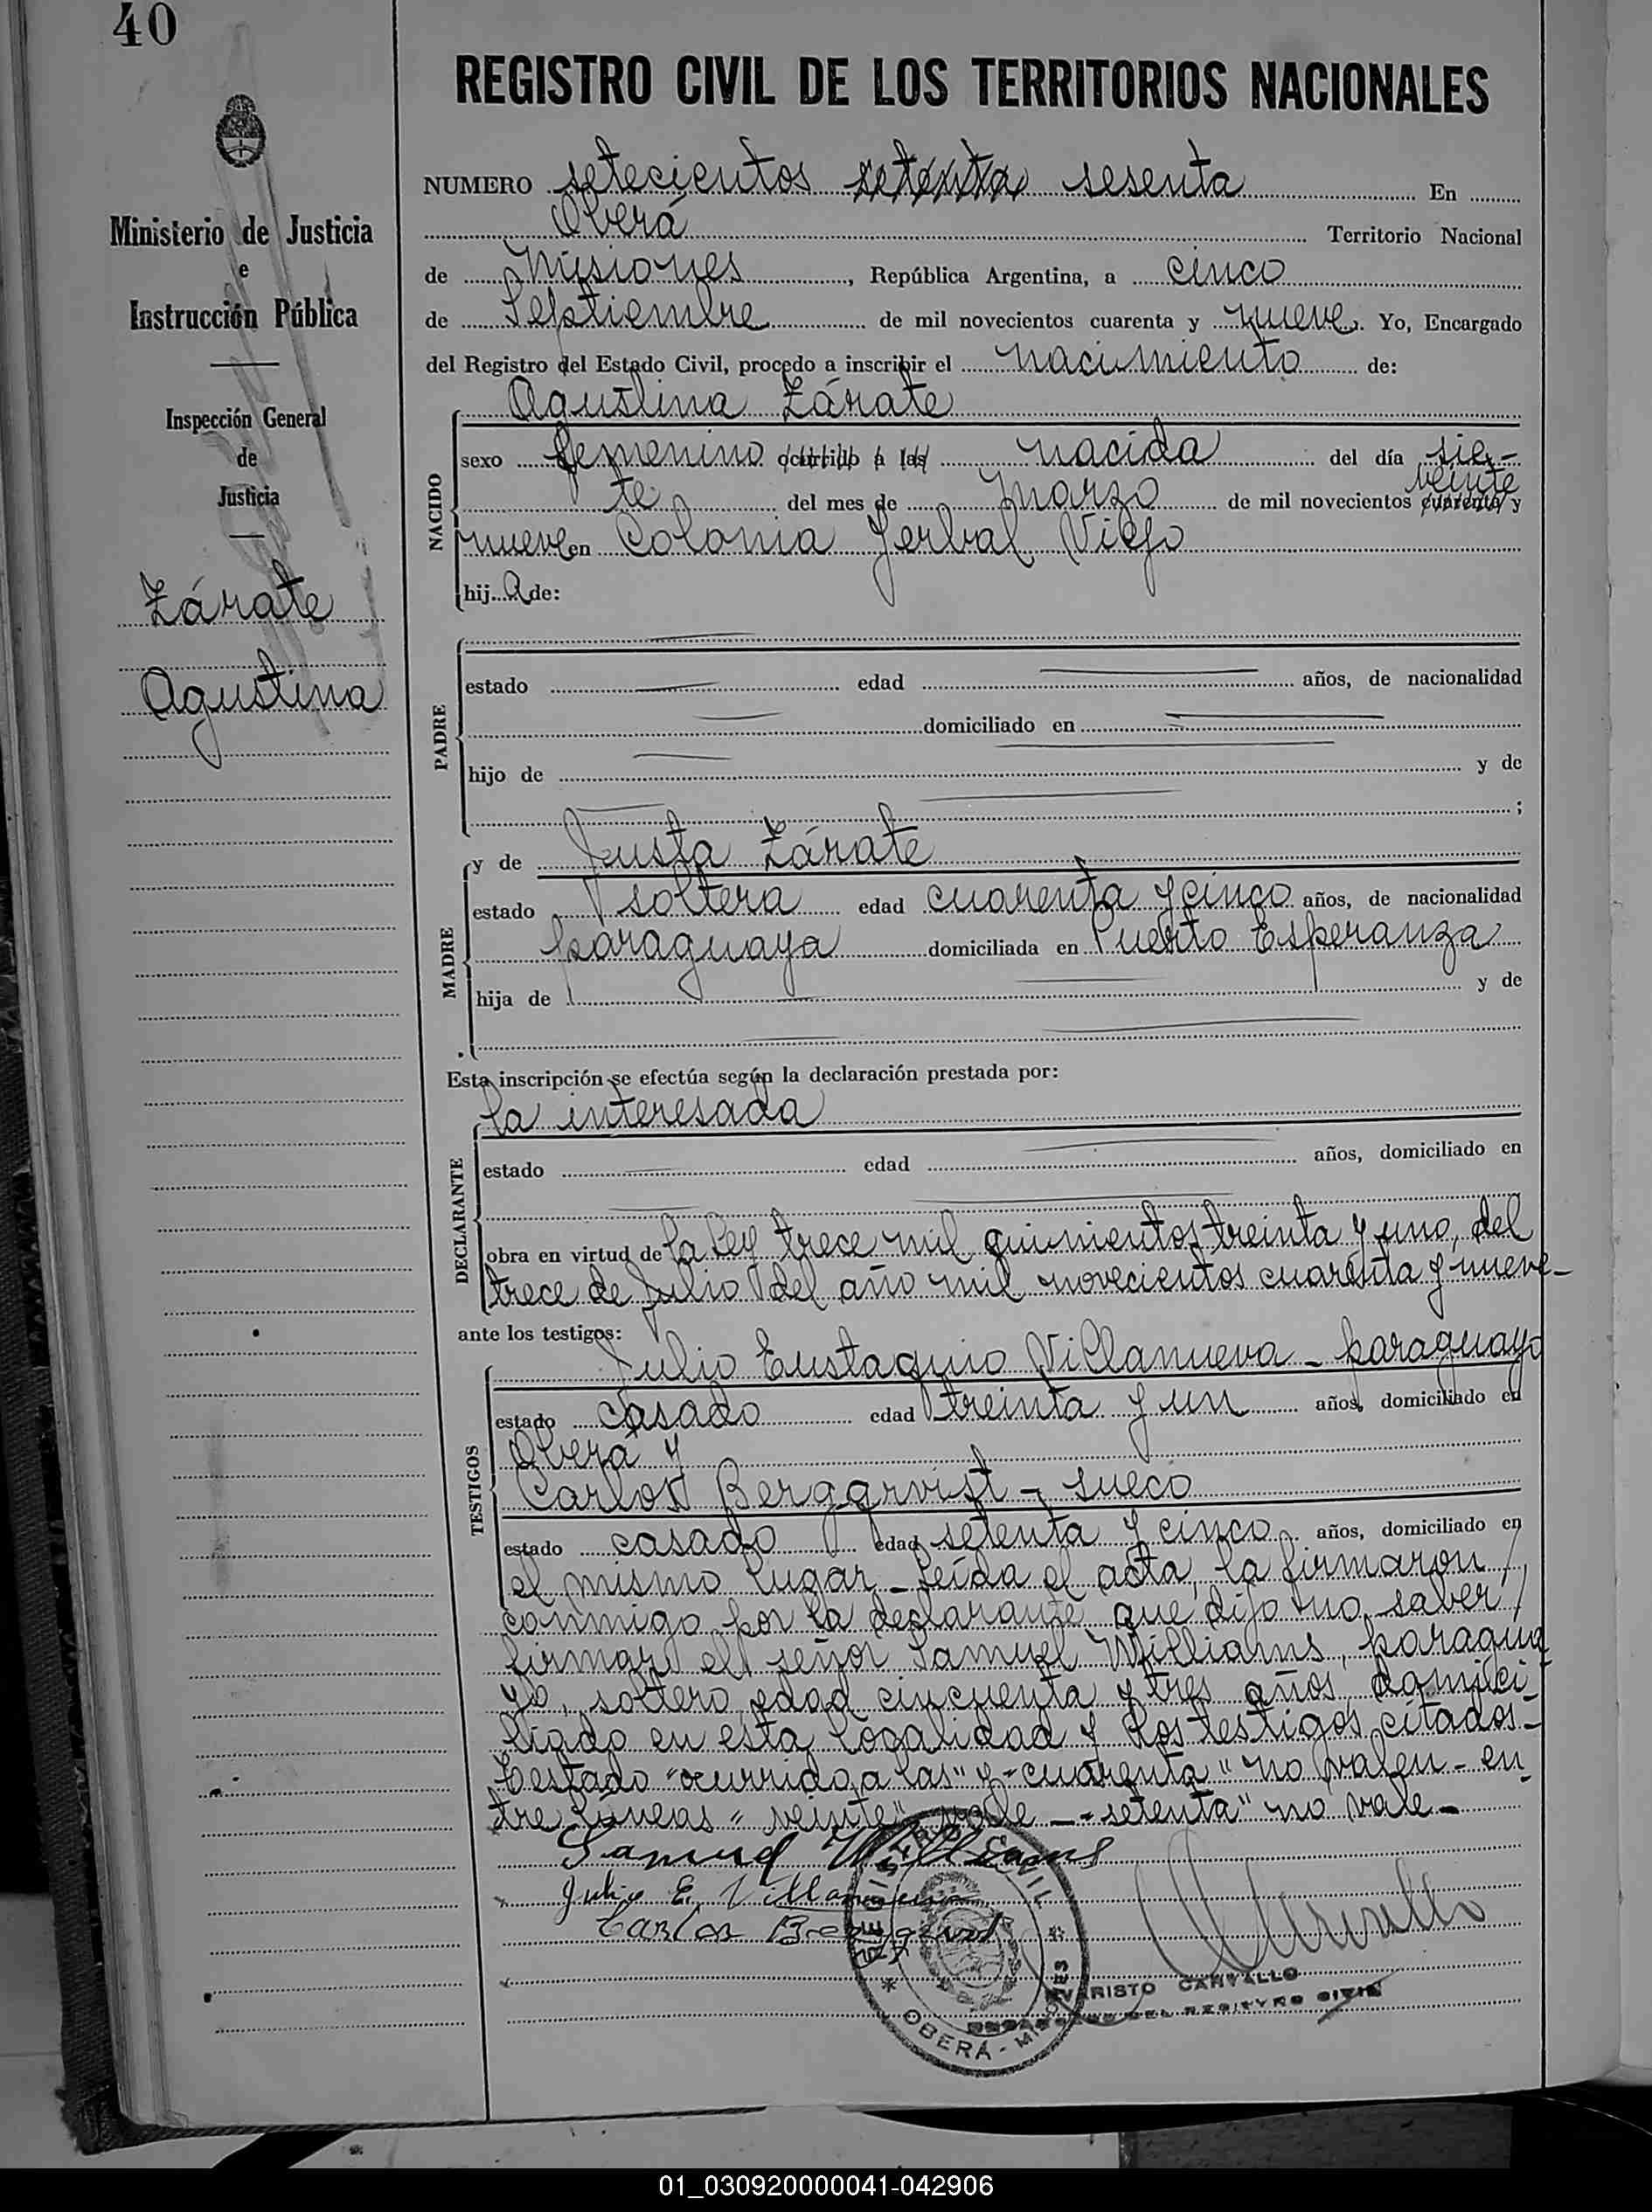 40
REGISTRO CIVIL DE LOS TERRITORIOS NACIONALES
Ministerio de Justicia
e
Instrucción Pública
Inspección General
de
Justicia
Zárate
Agustina
NUMERO setecientos setenta sesenta En
Oberá Territorio Nacional
de Misiones, República Argentina, a cinco
de Septiembre de mil novecientos cuarenta y nueve. Yo, Encargado
del Registro del Estado Civil, procedo a inscribir el nacimiento de:
Agustina Zárate
NACIDO
sexo femenino ocurrido a las nacida del día sie-
veinte
te del mes de marzo de mil novecientos cuarenta y
nueve en Colonia Yerbal Viejo
hija de:
PADRE
estado edad años, de nacionalidad
domiciliado en
hijo de y de
;
MADRE
y de Justa Zárate
estado soltera edad cuarenta y cinco años, de nacionalidad
paraguaya domiciliada en Puerto Esperanza
hija de y de
Esta inscripción se efectúa según la declaración prestada por:
DECLARANTE
la interesada
estado edad años, domiciliado en
obra en virtud de la ley trece mil quinientos treinta y uno, del
trece de Julio del año mil novecientos cuarenta y nueve-
ante los testigos:
TESTIGOS
Julio Eustaquio Villanueva - paraguayo
estado casado edad treinta y un años, domiciliado en
Oberá y
Carlos Bergqvist - sueco
estado casado edad setenta y cinco años, domiciliado en
el mismo lugar - Leída el acta, la firmaron /
conmigo por la declarante que dijo no saber /
firmar el señor Samuel Williams, paragua
yo, soltero, edad cincuenta y tres años, domici-
liado en esta localidad y los testigos citados-
Testado "ocurrido a las" y "cuarenta" no valen - en-
tre líneas "veinte" vale - "setenta" no vale -
Samuel Williams
Julio E. Villanueva
Carlos
REGISTRO CIVIL
* OBERÁ - MISIONES *
EVARISTO CARVALLO
ENCARGADO DEL REGISTRO CIVIL
01_030920000041-042906